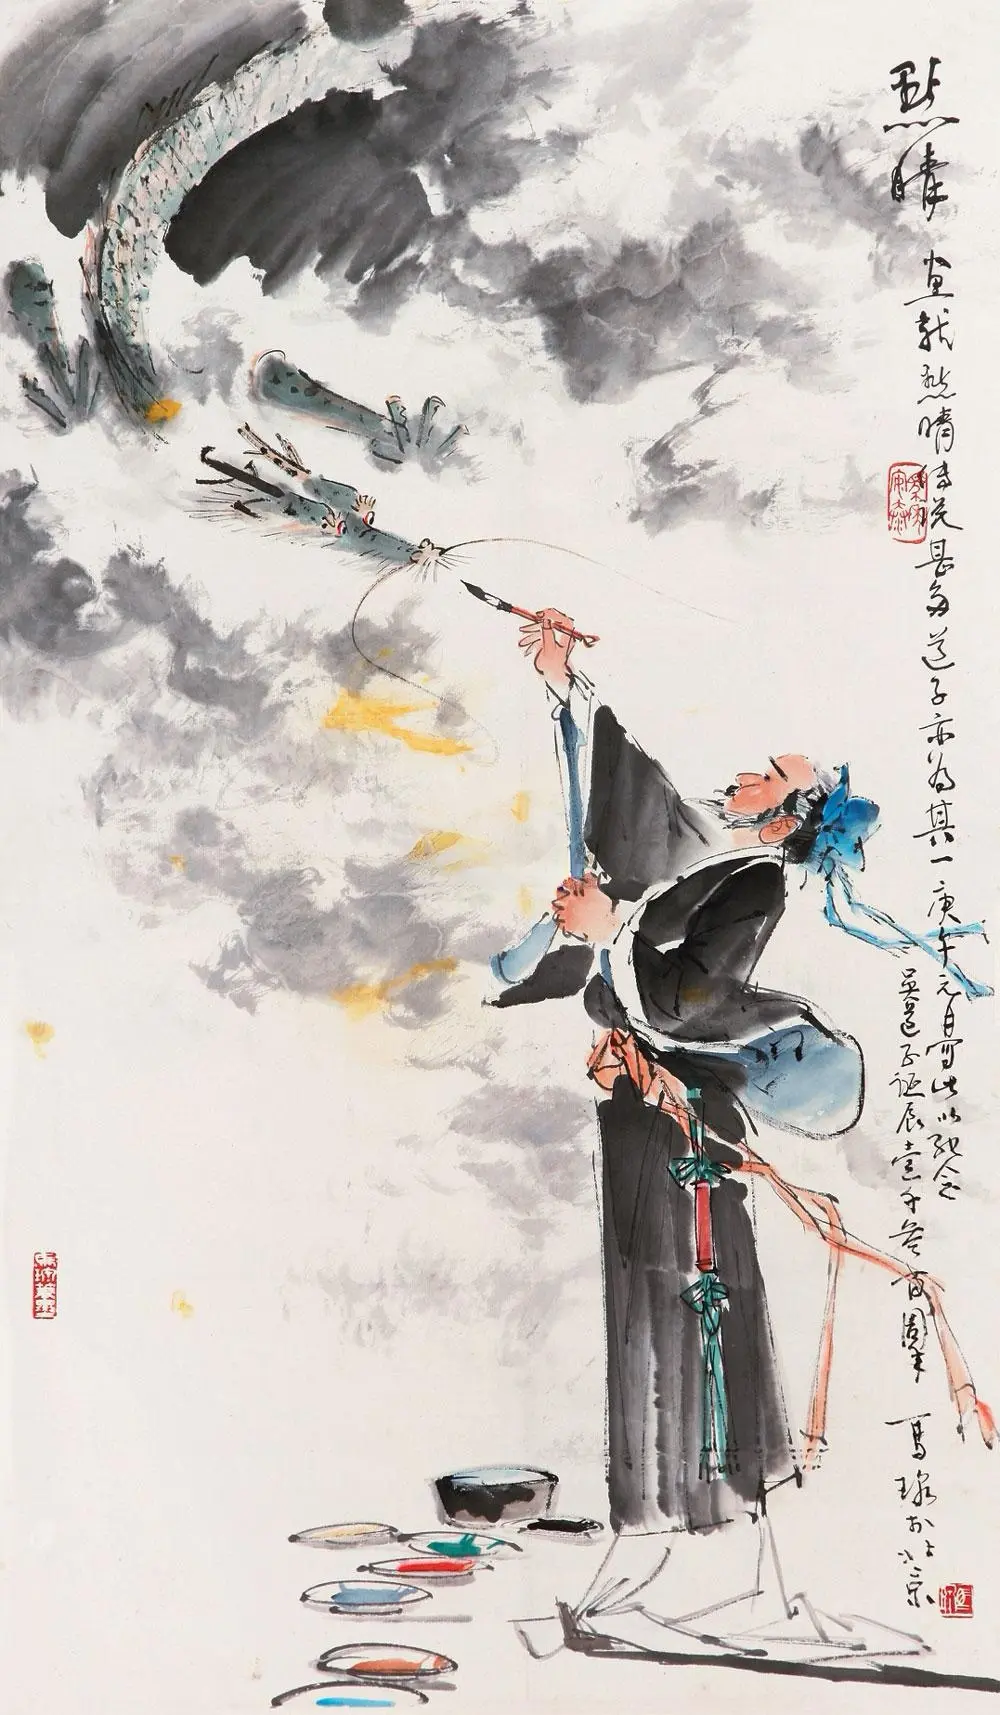 點睛
畫龍點睛傳說甚多道子亦為其一庚午元月寫此以紀念
吳道子誕辰壹千叁百周年
馬 於北京